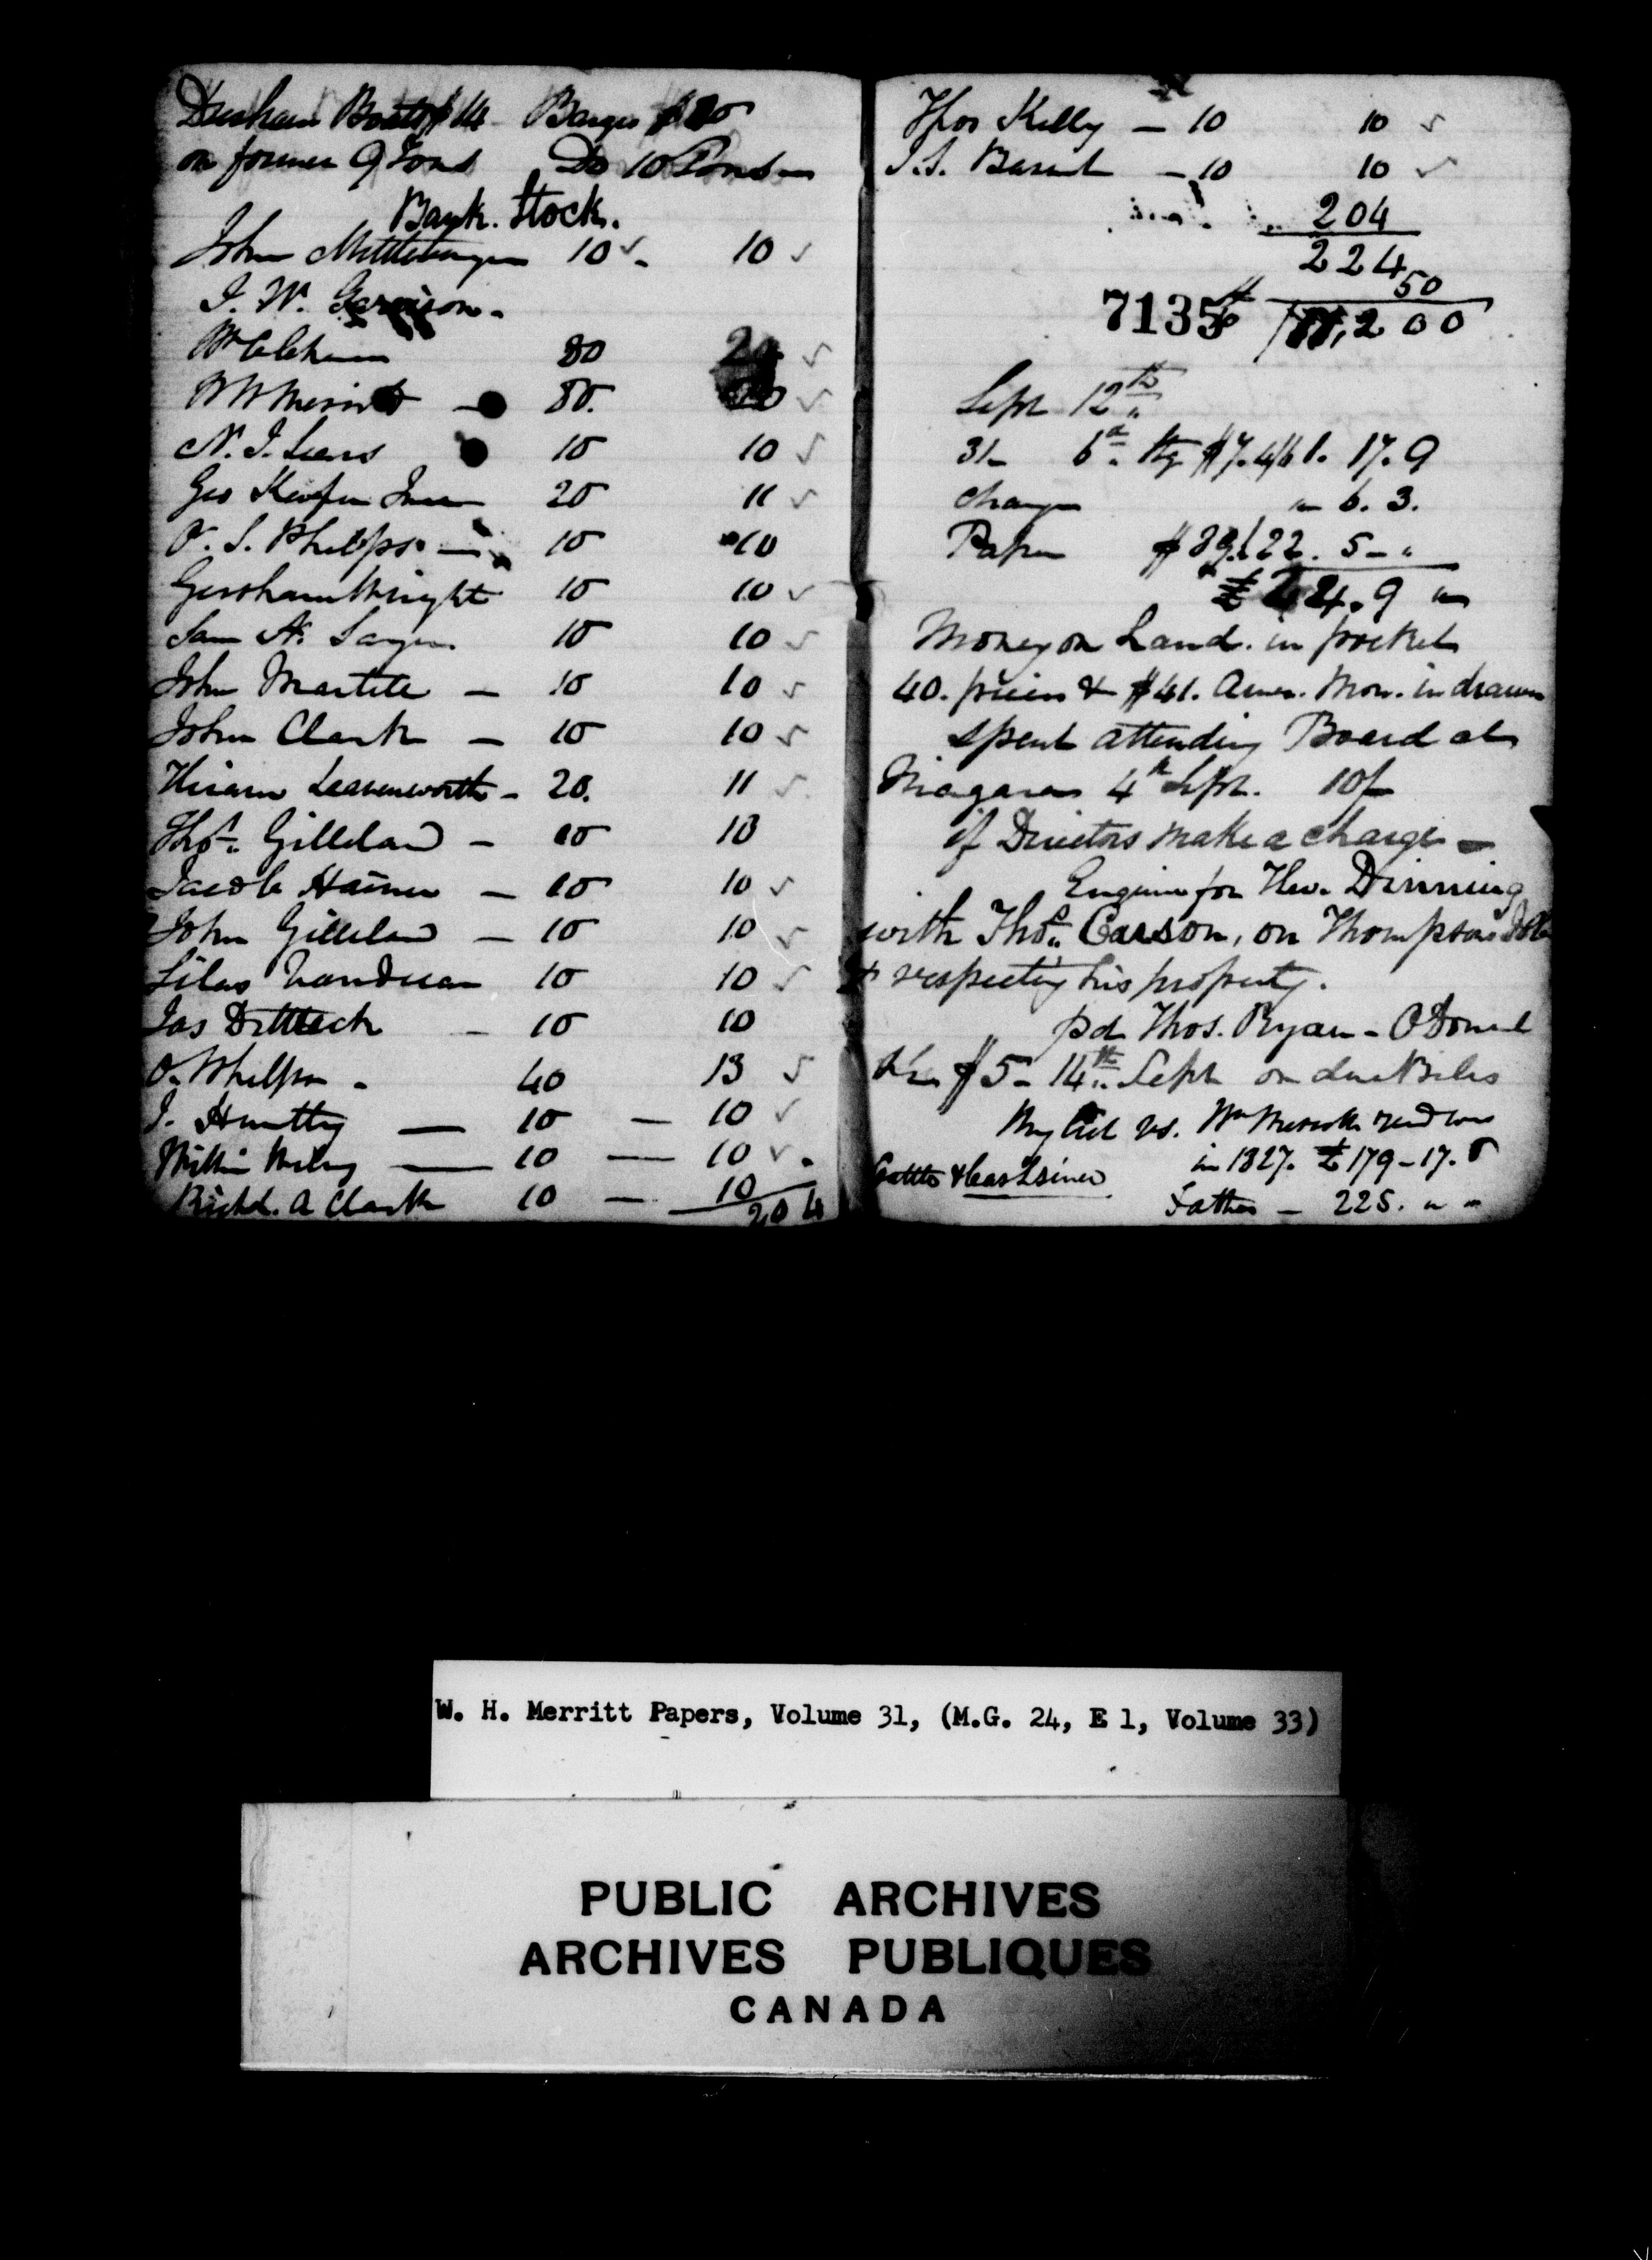 Durham Boats $14 Barges $20
on former 9 Tons Do 10 Tons
Bank Stock.
John Mittleberger 10 - 10 ✓
J. W. Garrison -
Wm Chisholm 80 ✓
W H Merritt - 80. ✓
N. J. 10 10 ✓
Geo Keefer Junr 20 11 ✓
O. S. Phelps - 10 10
Gersham Wright 10 10 ✓
Sam 10 10 ✓
John - 10 10 ✓
John Clark - 10 10 ✓
Hiram Leavenworth - 20. 11 ✓
Thos. Gilleland - 10 10
Jacob Hainer - 10 10 ✓
John Gilleland - 10 10 ✓
Silas 10 10 ✓
Jas Dittrick - 10 10
O. Phelps - 40 13 ✓
J. Huntly — 10 — 10 ✓
— 10 — 10 ✓
Richd. A Clark 10 — 10
204
Thos Kelly - 10 10 ✓
- 10 10 ✓
204
224
50
7135
11,200
Sept 12th
31- 6d Stg $7.4/6 1. 17. 9
Change " 6. 3.
Paper $89. £22. 5 - "
£24. 9 "
Money on Hand. in pocket
40. pieces & $41. Amer. Mon. in drawer
spent attending Board at
Niagara 4th Sept. 10/-
if Directors make a charge -
Enquire for Hu. Dinning
with Thos. Carson, on Thompsons
& respecting his property.
pd Thos. Ryan - O'Donel
$5 - 14th Sept on due Bills
My vs. Wm
in 1827. £179 - 17. 5
Father - 225. " "
W. H. Merritt Papers, Volume 31, (M.G. 24, E 1, Volume 33)
PUBLIC ARCHIVES
ARCHIVES PUBLIQUES
CANADA